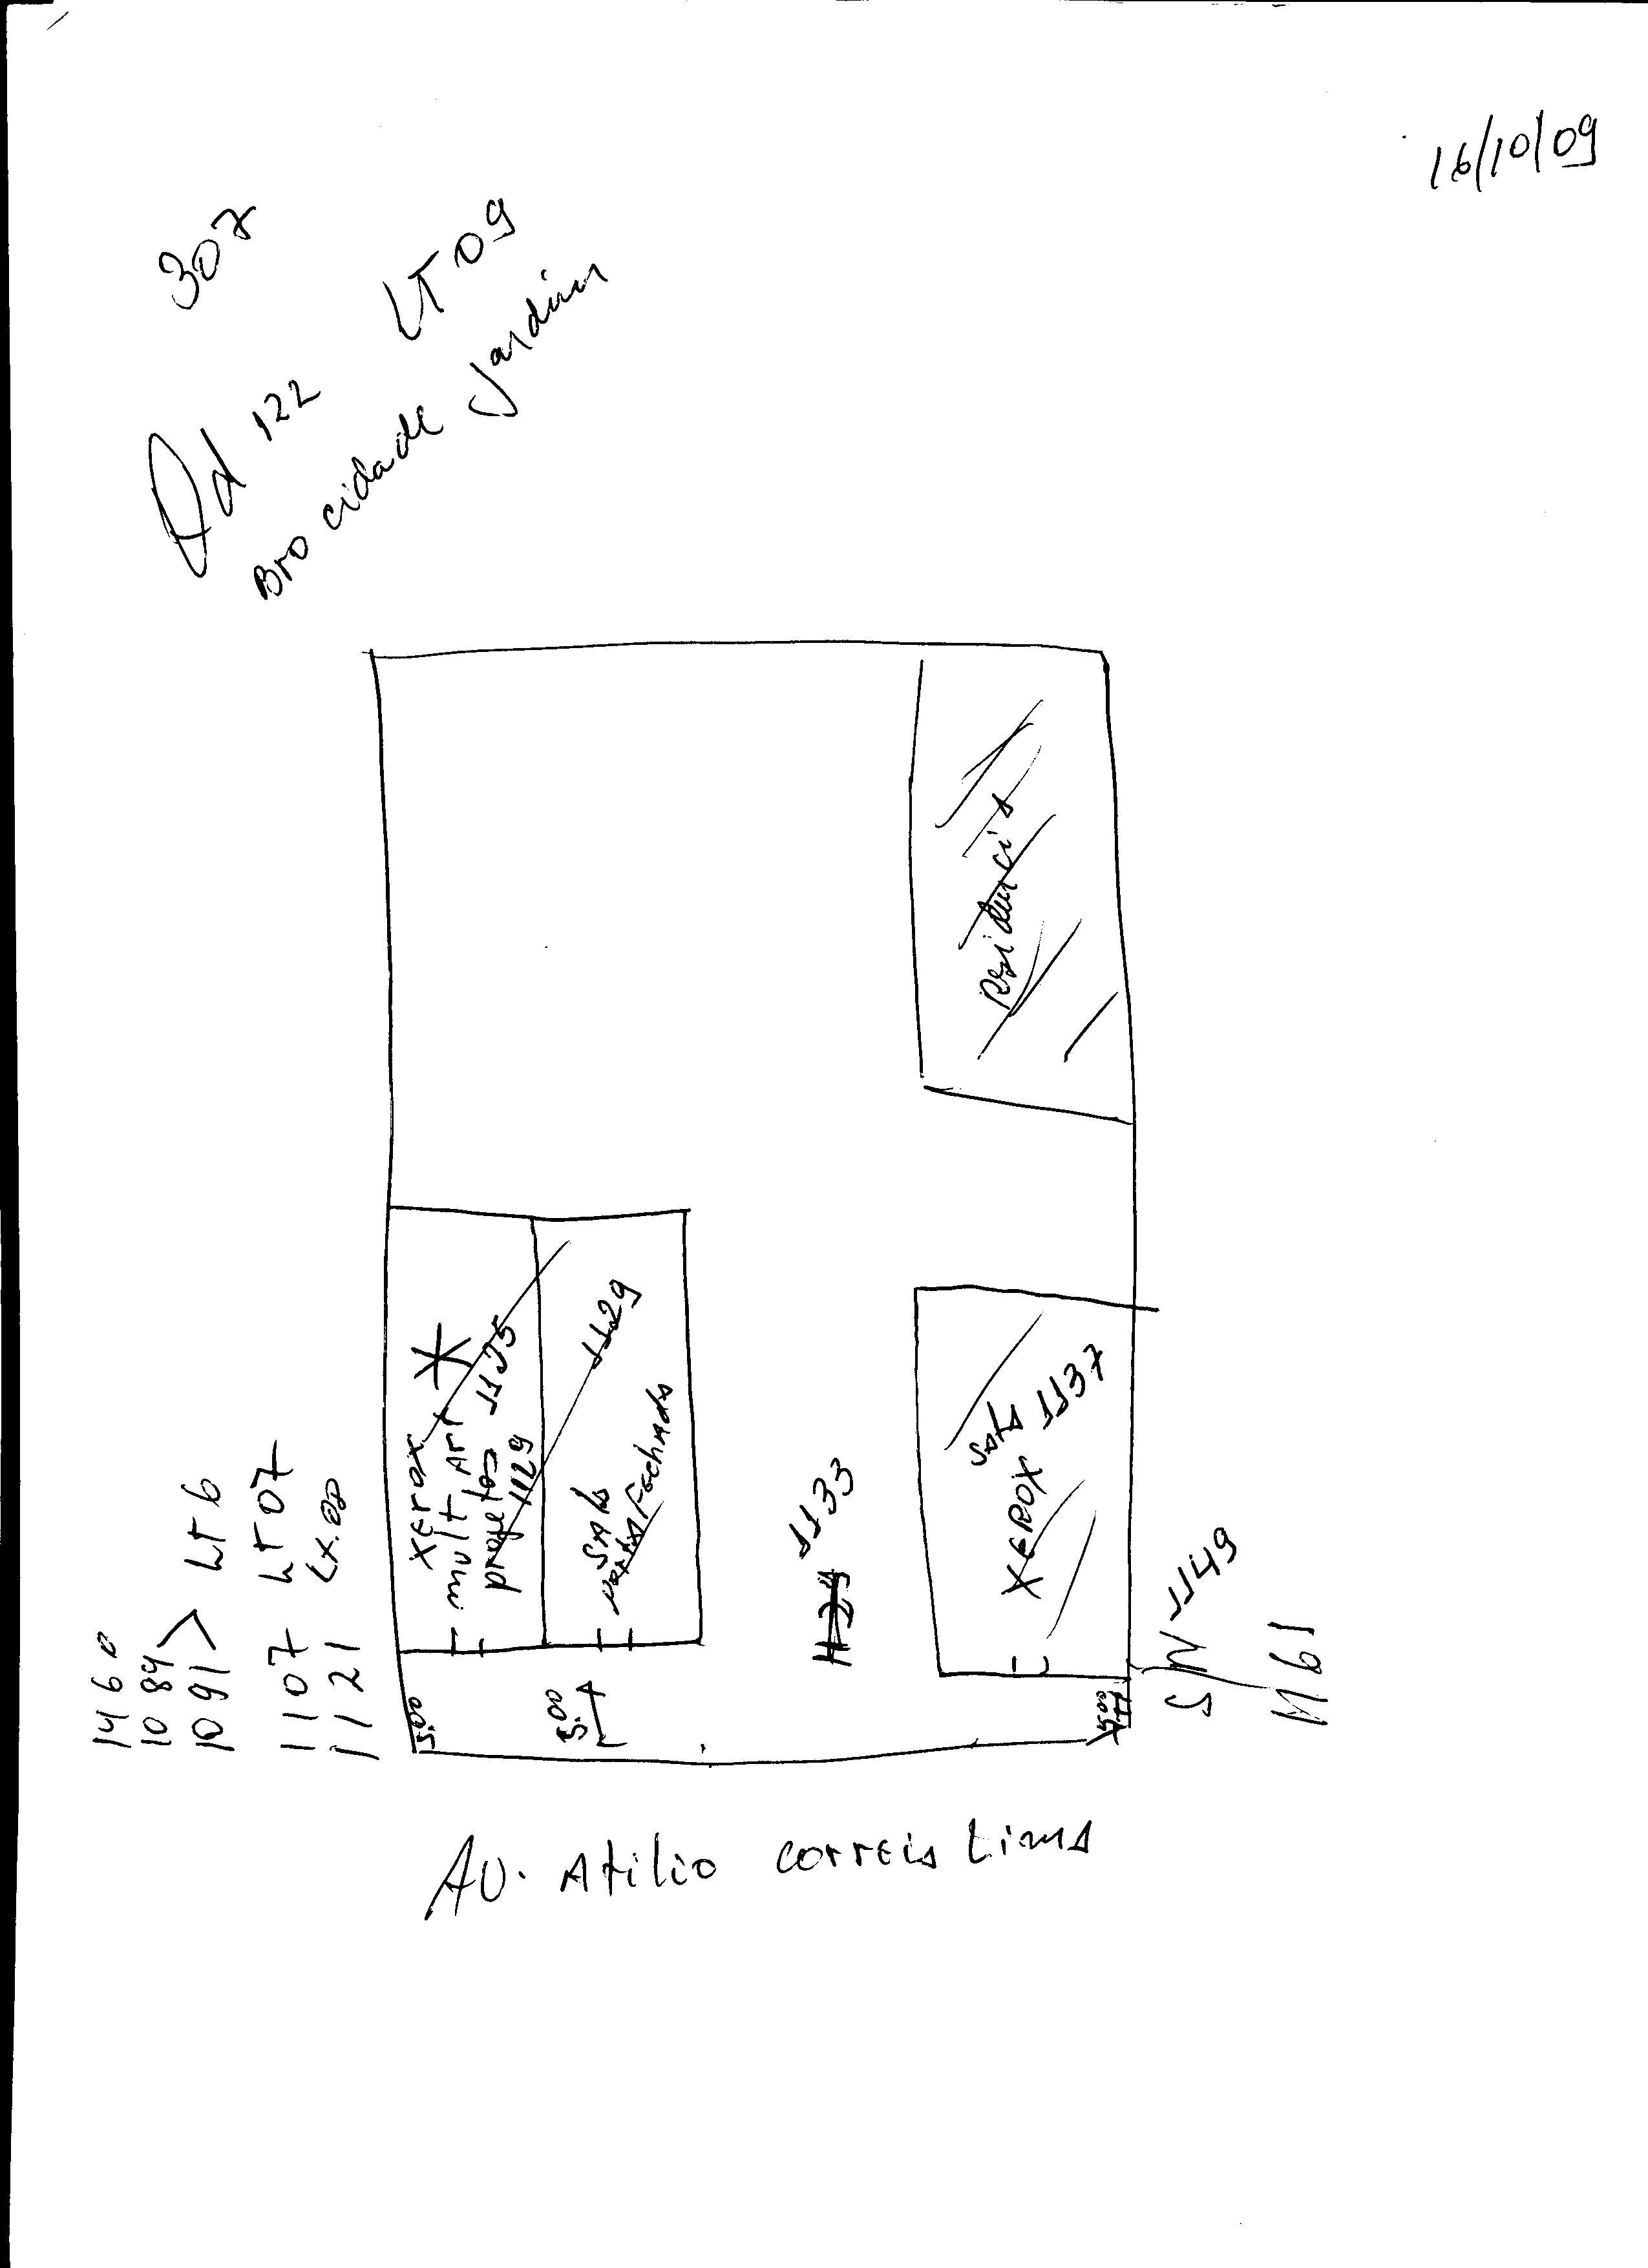 16/10/09
307
Qd 122 LT 09
Bro cidade Jardim
Residencia
XEROX
mult ART
projetos 1125
1129
SALA
Fechada
1129
1133
SALA 1137
XEROX
1460
1089
1091 > LT 6
1107 LT 07
1121 LT.08
5.00
5.00
5.00
SN 1149
1161
AV. Atilio correia Lima